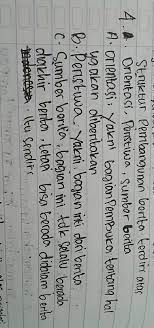 4 Struktur Pembangunan berita terdiri atas
Orientasi, Peristiwa, sumber berita
A. orientasi, yakni bagian Pembukaan tentang hal
yg akan diberitakan
B. Peristiwa, yakni bagian inti dari berita
C. Sumber berita, bagian ini tdk selalu berada
diakhir berita, tetapi bisa berada didalam berita
itu sendiri.